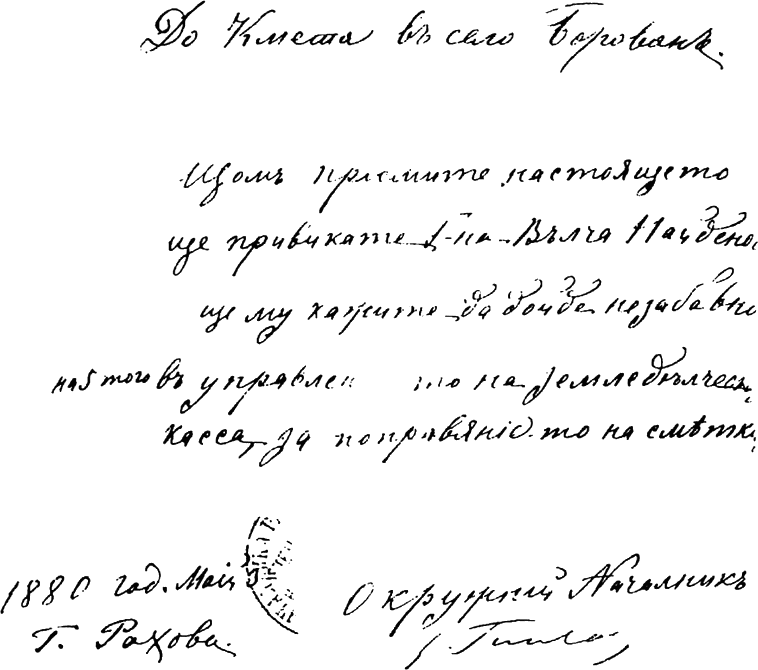 До Кмета въ село Борованъ.
Щомъ приемите настоящето
ще привикате Г-на Вълча Найдено
ще му кажите да дойде незабавно
на 5 того въ управлен то на земледѣлческ
касса, за поправяніе-то на смѣтки
1880 год. Маій
Окружній Началникъ
Г. Рахова.